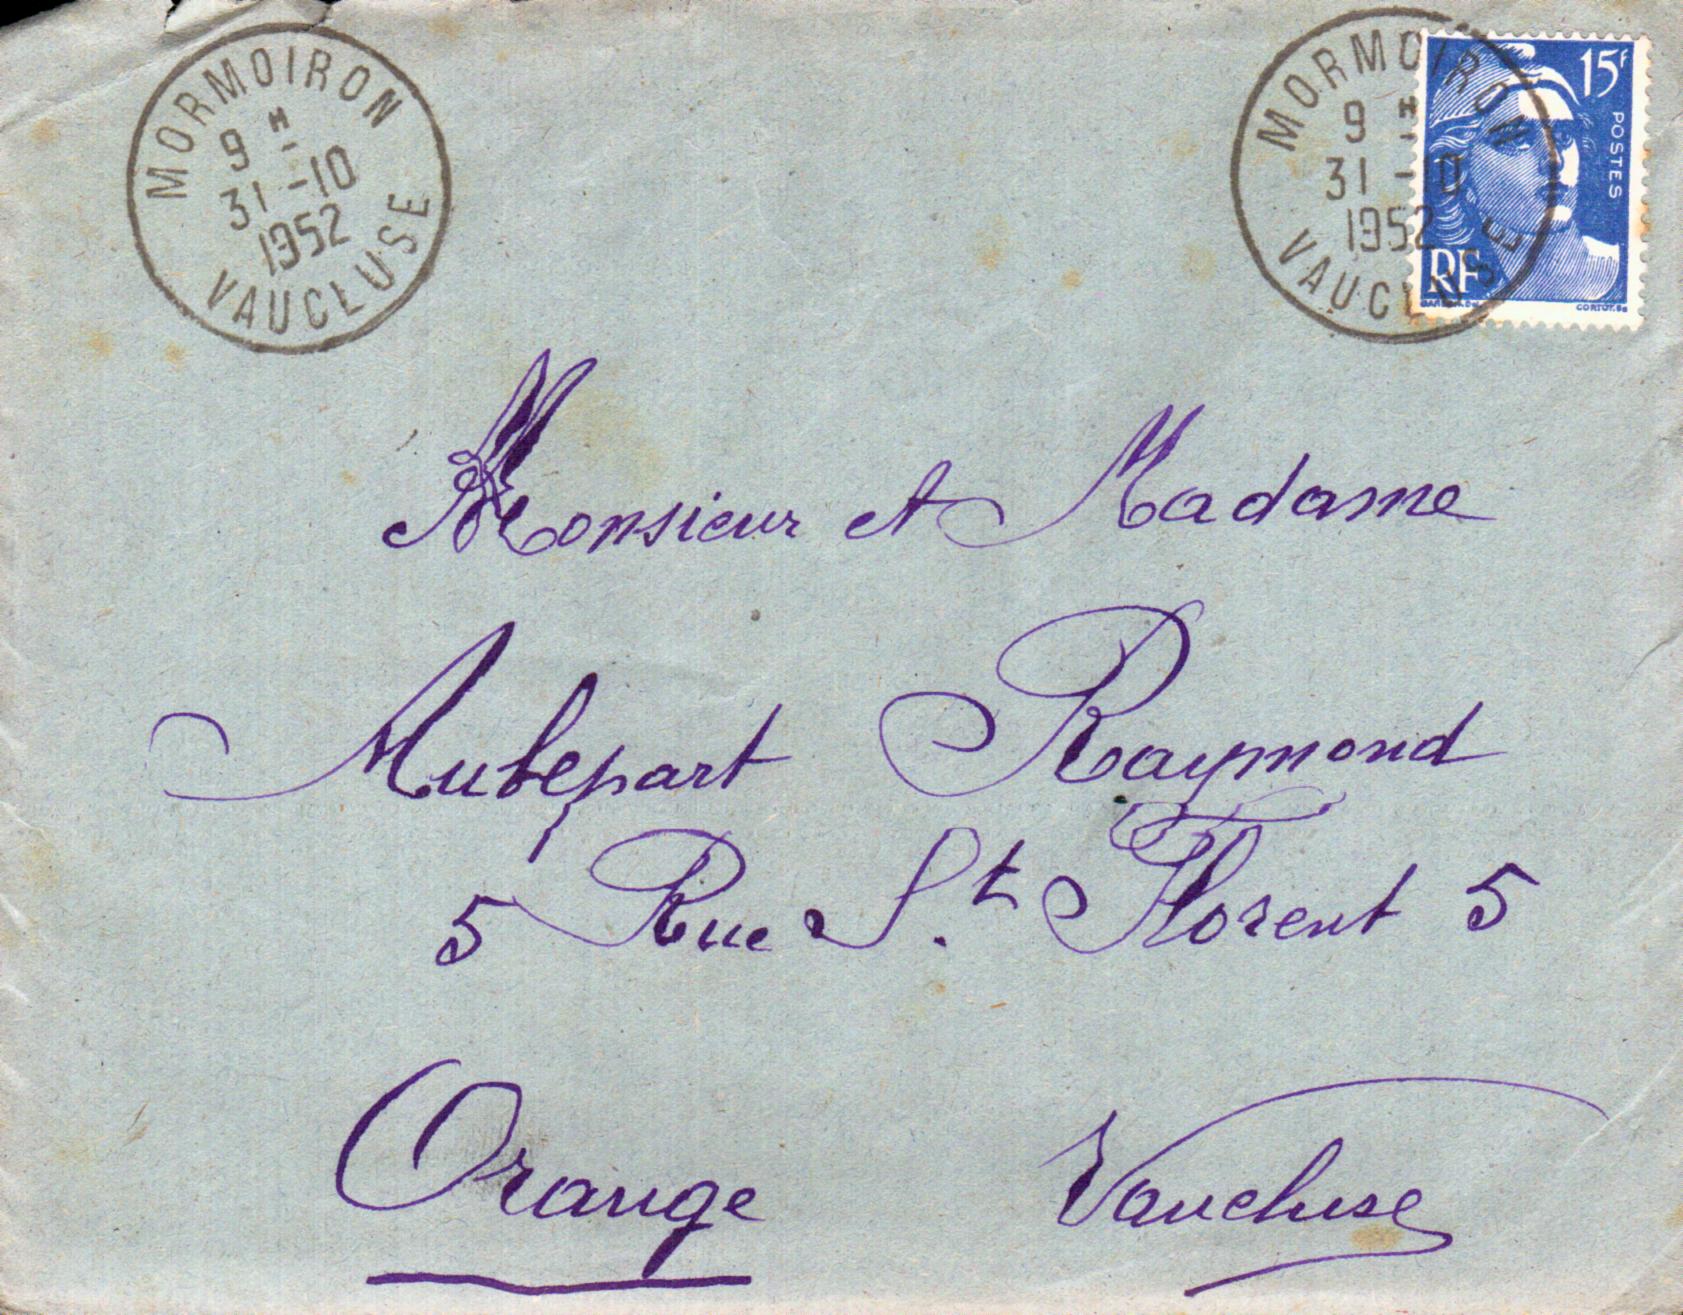 MORMOIRON
9 H
31 -10
1952
VAUCLUSE
MORMOIRON
9 H
31 -10
1952
VAUCLUSE
15F
POSTES
RF
Monsieur et Madame
Aubepart Raymond
5 Rue St. Florent 5
Orange Vaucluse